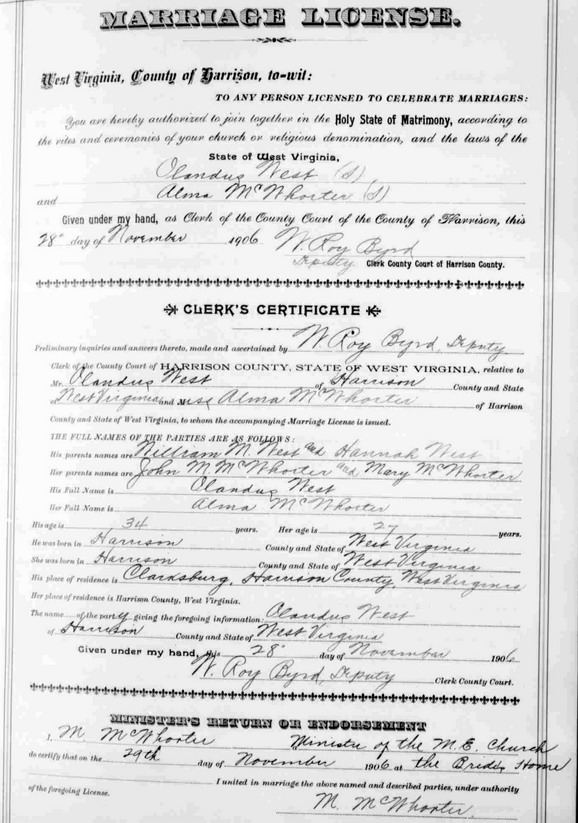 MARRIAGE LICENSE.
West Virginia, County of Harrison, to-wit:
TO ANY PERSON LICENSED TO CELEBRATE MARRIAGES:
You are hereby authorized to join together in the Holy State of Matrimony, according to
the rites and ceremonies of your church or religious denomination, and the laws of the
State of West Virginia,
Olandus West (S)
and Alma McWhorter (S)
Given under my hand, as Clerk of the County Court of the County of Harrison, this
28" day of November 1906 W. Roy Byrd
Deputy Clerk County Court of Harrison County.
CLERK'S CERTIFICATE
Preliminary inquiries and answers thereto, made and ascertained by W Roy Byrd, Deputy
Clerk of the County Court of HARRISON COUNTY, STATE OF WEST VIRGINIA, relative to
Mr. Olandus West of Harrison County and State
of West Virginia and Miss Alma McWhorter of Harrison
County and State of West Virginia, to whom the accompanying Marriage License is issued.
THE FULL NAMES OF THE PARTIES ARE AS FOLLOWS:
His parents names are William M. West and Hannah West
Her parents names are John M. McWhorter and Mary McWhorter
His Full Name is Olandus West
Her Full Name is Alma McWhorter
His age is 34 years. Her age is 27 years.
He was born in Harrison County and State of West Virginia
She was born in Harrison County and State of West Virginia
His place of residence is Clarksburg, Harrison County, West Virginia
Her place of residence is Harrison County, West Virginia.
The name of the party giving the foregoing information: Olandus West
of Harrison County and State of West Virginia
Given under my hand, this 28" day of November 1906
W. Roy Byrd, Deputy Clerk County Court.
MINISTER'S RETURN OR ENDORSEMENT
I, M McWhorter Ministe of the M.E. Church
do certify that on the 29th day of November 1906 at the Brides Home
I united in marriage the above named and described parties, under authority
of the foregoing License.
M. McWhorter